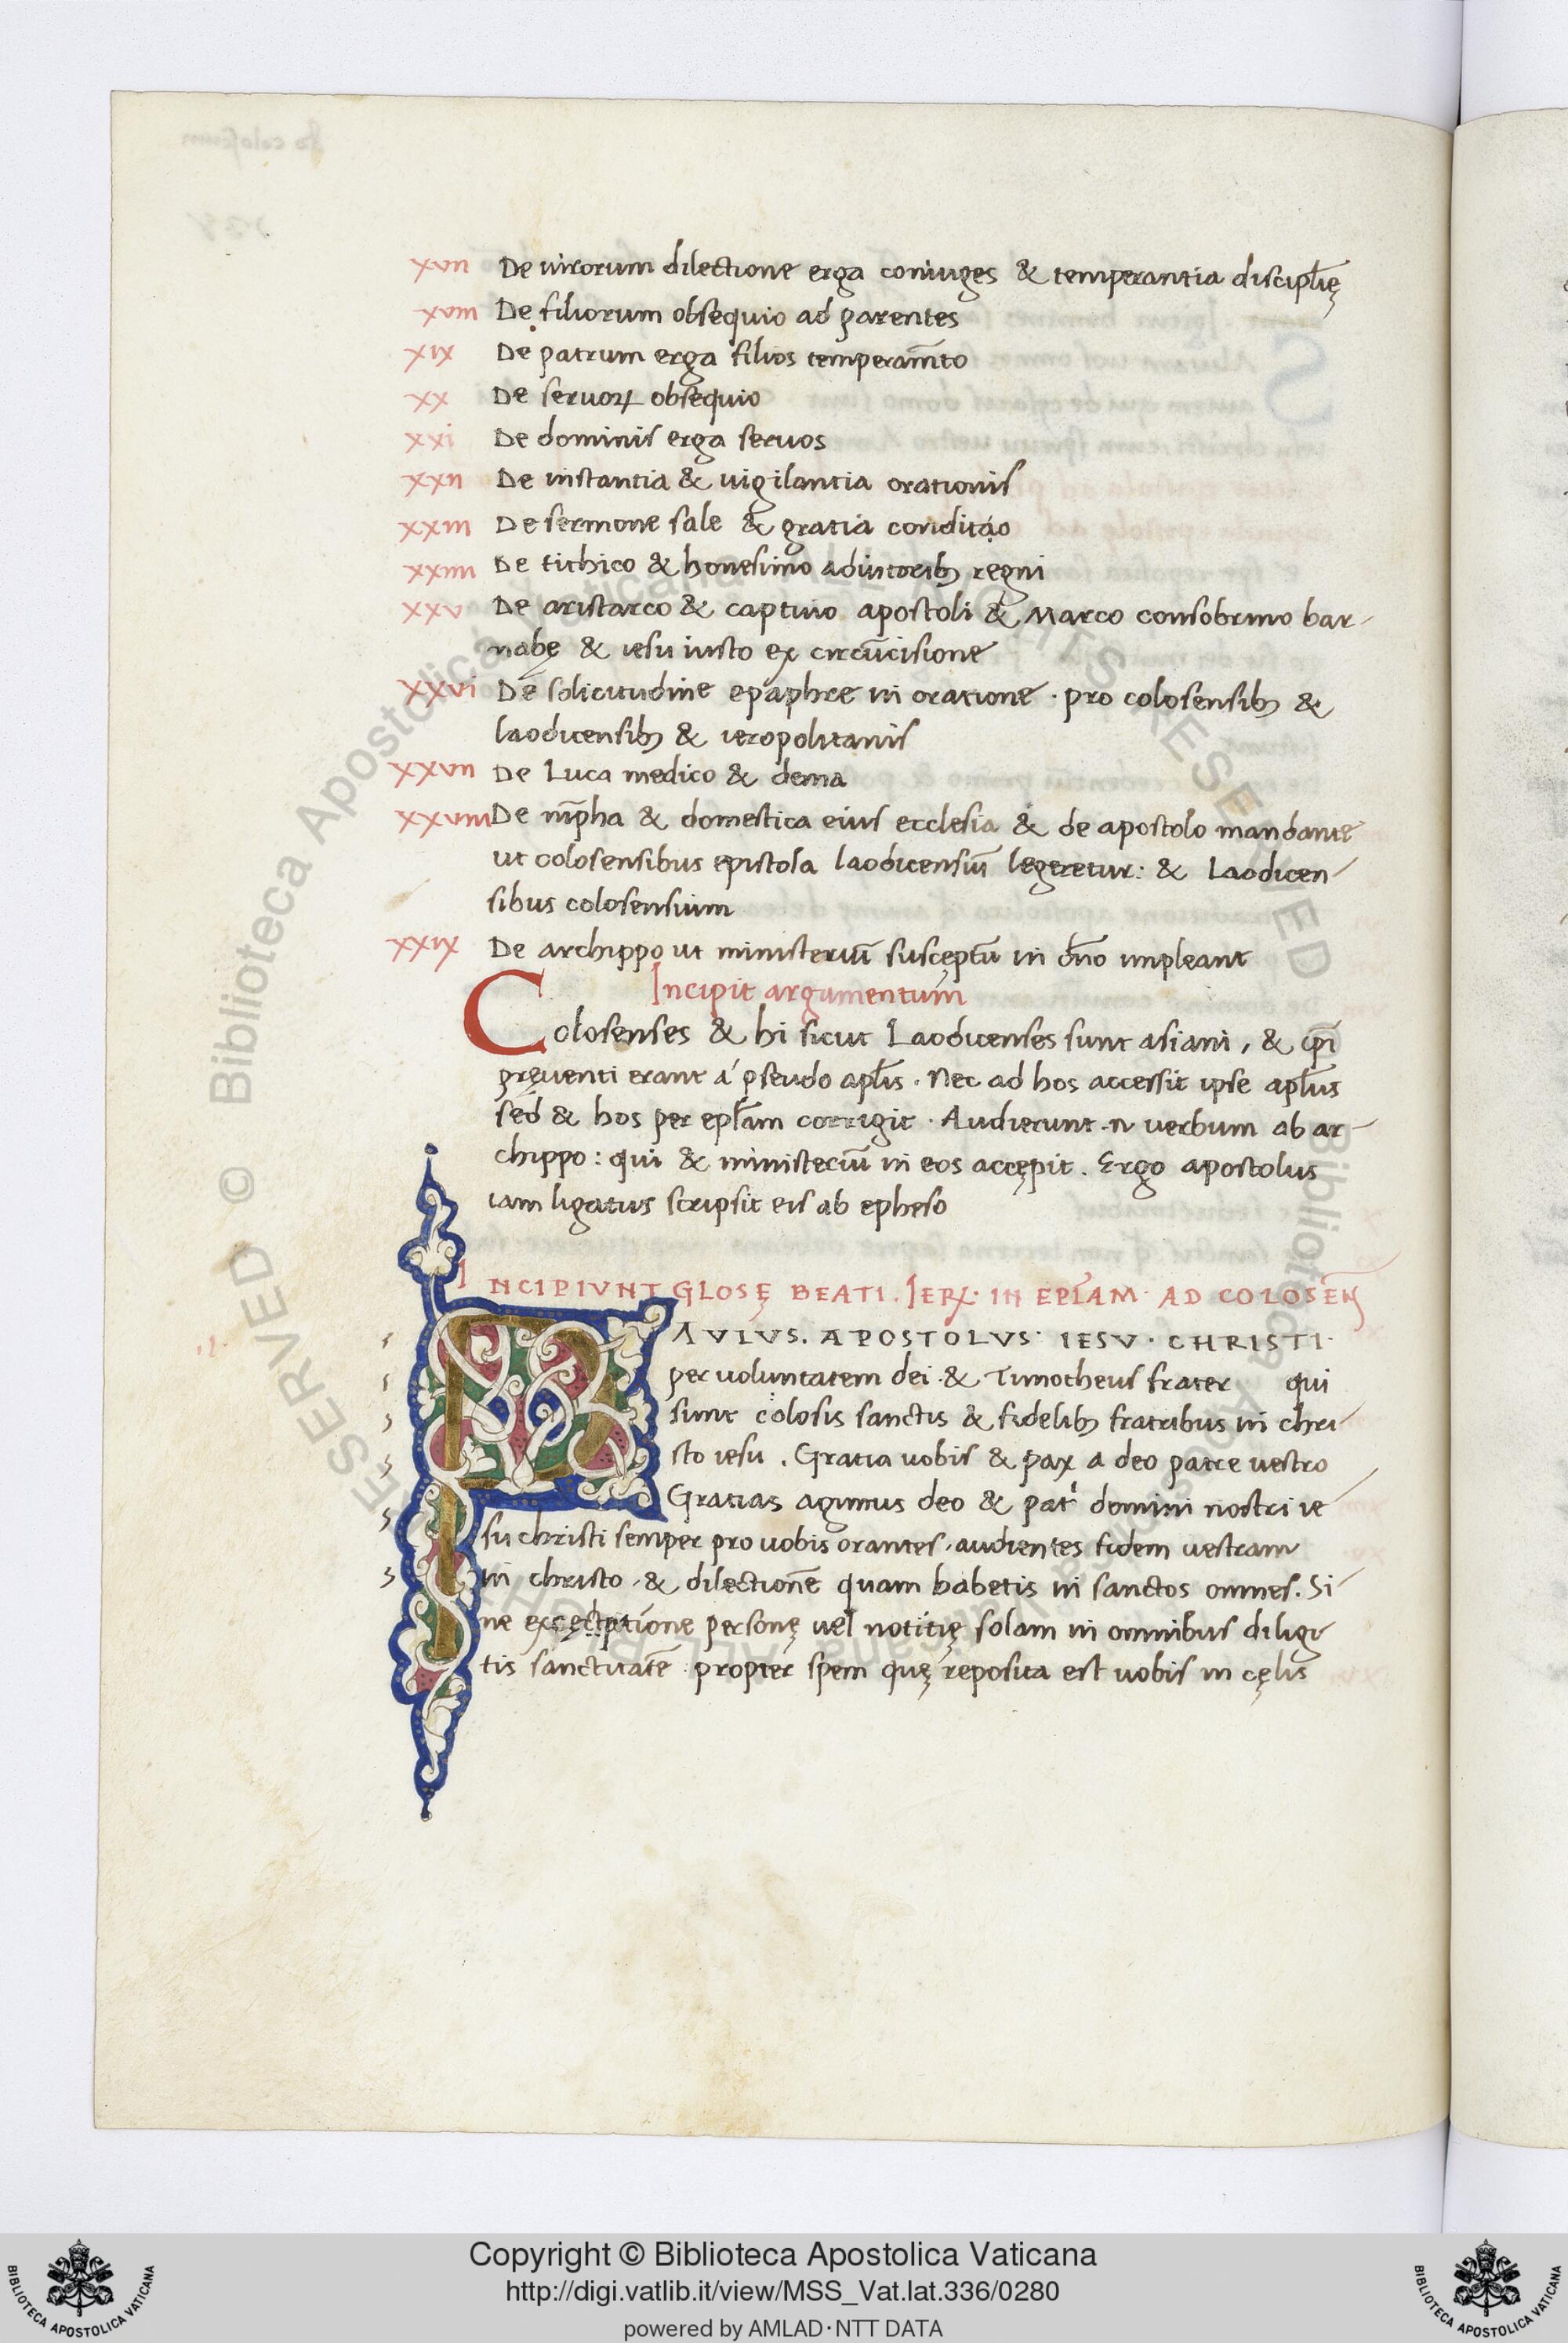 xvii De uirorum dilectione erga coniuges & temperantia disciplīę
xviii De filiorum obsequio ad parentes
xix De patrum erga filios temperam̄to
xx De seruoꝝ obsequio
xxi De dominis erga seruos
xxii De instantia & uigilantia orationis
xxiii De sermone sale & gratia condito
xxiiii De tichico & honesimo adiutorib; regni
xxv De aristarco & captiuo apostoli & Marco consobrino bar-
nabę & iesu iusto ex circūcisione
xxvi De solicitudine epaphre in oratione · pro colosensib; &
laodicensib; & ieropolitanis
xxvii De Luca medico & dema
xxviii De nīpha & domestica eius ecclesia & de apostolo mandante
ut colosensibus epistola laodicensiū legeretur: & Laodicen-
sibus colosensium
xxix De archippo ut ministeriū susceptū in dn̄o impleant
Incipit argumentum
Colosenses & hi sicut Laodicenses sunt asiani, & ip̄i
pręuenti erant a pseudo apl̄is · Nec ad hos accessit ipse apl̄us
sed & hos per epl̄am corrigit · Audierunt .n. uerbum ab ar-
chippo: qui & ministeriū in eos accępit. Ergo apostolus
iam ligatus scripsit eis ab epheso
INCIPIVNT GLOSĘ BEATI. IERX. IN EPL̄AM· AD COLOSEN̄
PAVLVS. APOSTOLVS· IESV· CHRISTI·
per uoluntatem dei · & Timotheus frater qui
sunt colosis sanctis & fidelib; fratribus in chri-
sto iesu. Gratia uobis & pax a deo patre uestro
Gratias agimus deo & patⁱ domini nostri ie
su christi semper pro uobis orantes · audientes fidem uestram
in christo · & dilectionē quam habetis in sanctos omnes. Si-
ne exceptione personę uel notitię solam in omnibus diligi-
tis sanctitatē propter spem quę reposita est uobis in cęlis
Copyright © Biblioteca Apostolica Vaticana
http://digi.vatlib.it/view/MSS_Vat.lat.336/0280
powered by AMLAD·NTT DATA
BIBLIOTECA APOSTOLICA VATICANA
BIBLIOTECA APOSTOLICA VATICANA